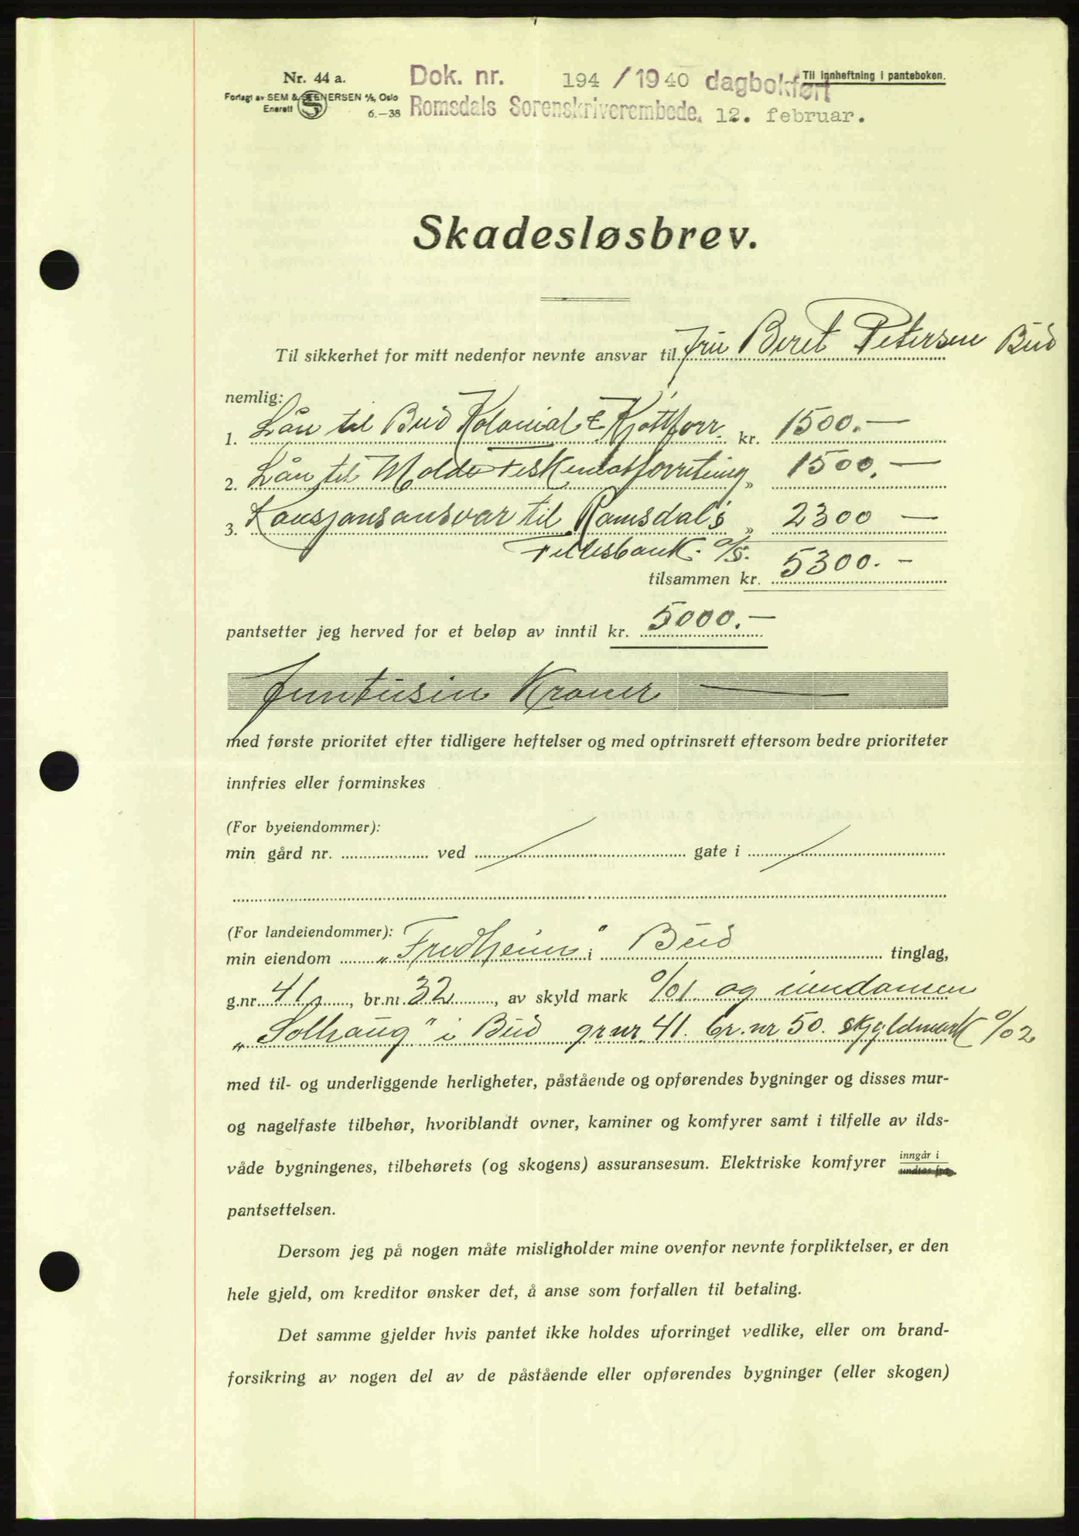 Nr. 44 a.
Forlagt av SEM & STENERSEN A/S, Oslo
Enerett
6.—38
Dok. nr. 194 / 1940 dagbokført
Romsdals Sorenskriverembede. 12. februar.
Til innheftning i panteboken.
Skadesløsbrev.
Til sikkerhet for mitt nedenfor nevnte ansvar til Fru Beret Petersen Bud
nemlig:
1. Lån til Bud Kolonial & Kjøttforr. kr. 1500.—
2. Lån til Molde Fiskematforretning „ 1500.—
3. Kausjonsansvar til Romsdal's „ 2300 —
Fellesbank A/S.
tilsammen kr. 5300.—
pantsetter jeg herved for et beløp av inntil kr. 5000.—
Femtusin Kroner
med første prioritet efter tidligere heftelser og med optrinsrett eftersom bedre prioriteter
innfries eller forminskes
(For byeiendommer):
min gård nr. ved gate i
(For landeiendommer):
min eiendom „Fredheim" i Bud tinglag,
g.nr. 41, br.nr. 32, av skyld mark 0/01 og eiendomen
„Solhaug" i Bud gr nr 41. br. nr. 50. skyldmark 0/02
med til- og underliggende herligheter, påstående og opførendes bygninger og disses mur-
og nagelfaste tilbehør, hvoriblandt ovner, kaminer og komfyrer samt i tilfelle av ilds-
våde bygningenes, tilbehørets (og skogens) assuransesum. Elektriske komfyrer inngår i
pantsettelsen.
Dersom jeg på nogen måte misligholder mine ovenfor nevnte forpliktelser, er den
hele gjeld, om kreditor ønsker det, å anse som forfallen til betaling.
Det samme gjelder hvis pantet ikke holdes uforringet vedlike, eller om brand-
forsikring av nogen del av de påstående eller opførendes bygninger (eller skogen)